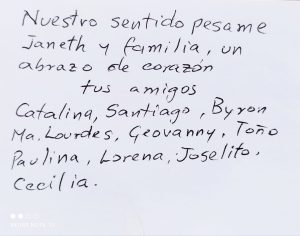 Nuestro sentido pesame
Janeth y familia, un
abrazo de corazón
tus amigos
Catalina, Santiago, Byron
Ma. Lourdes, Geovanny, Toño
Paulina, Lorena, Joselito.
Cecilia.